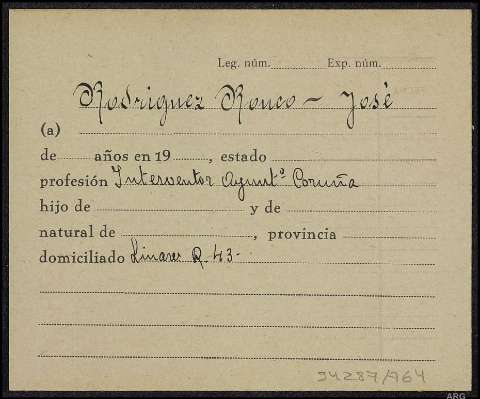 Leg. núm. Exp. núm.
Rodriguez Ronco - José
(a)
de años en 19 , estado
profesión Interventor Ayuntº Coruña
hijo de y de
natural de , provincia
domiciliado Linares R. 43-
94287/764
ARG